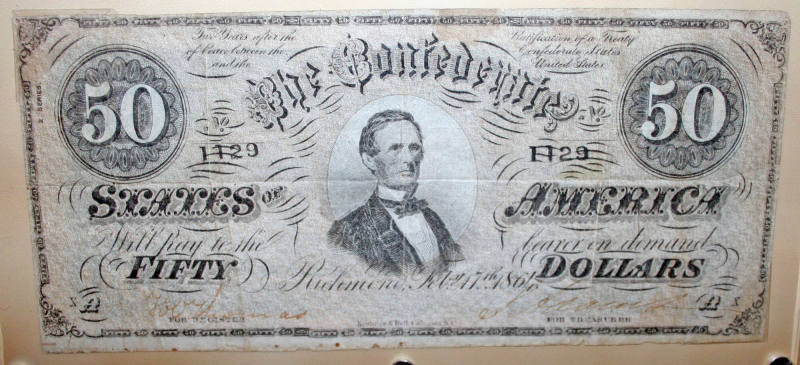 Two Years after the
of Peace between the
and the
Ratification of a Treaty
Confederate States
United States.
The Confederate
50
50
1129
1129
STATES OF AMERICA
Will pay to the bearer on demand
FIFTY DOLLARS
Richmond, Feby. 17th, 1864.
A
A
FOR REGISTER
FOR TREASURER
2 SERIES